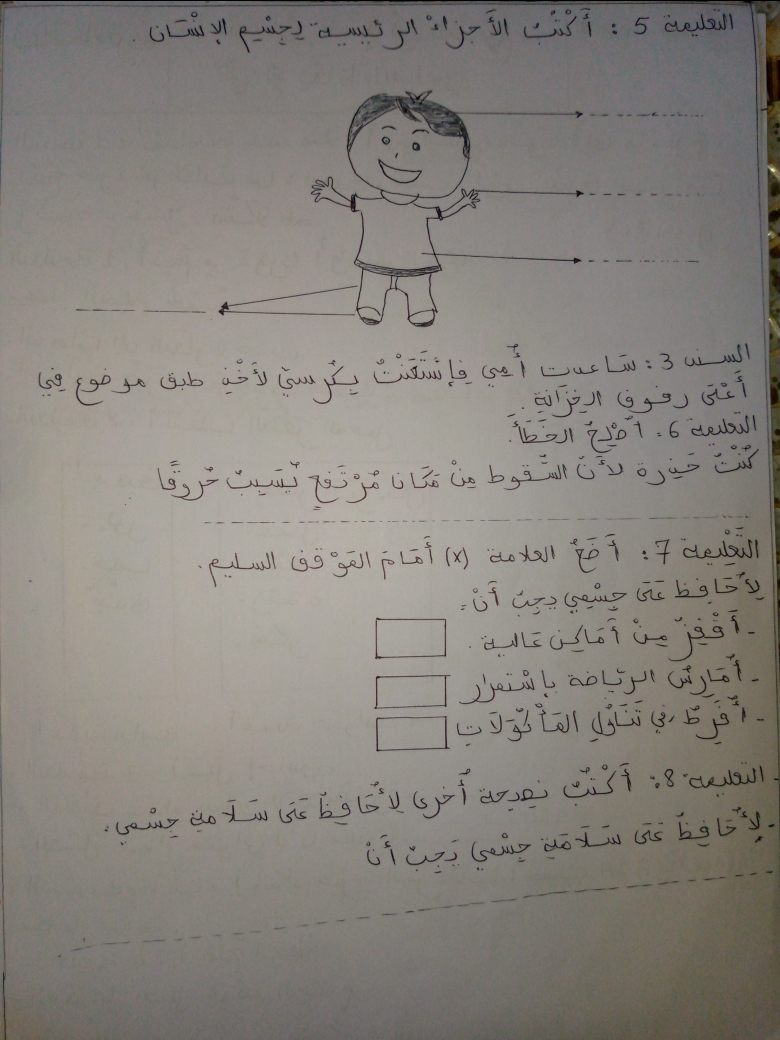 التعليمة 5 : أَكْتُبُ الأَجزاءْ الرئيسية لِجِسْمِ الإنْسَان .
السند 3 : سَاعدت أُمِي فاِسْتَعَنْتُ بِكُرسيّ لأَخْذِ طبق موضوع فِي
أَعْلَى رفوف الخِزَانَةِ .
التعليمة 6 : أصْلِحُ الخَطَأَ .
كُنْتُ حَذِرة لأَنّ السُّقوط مِنْ مَكَان مُرْتَفعٍ يُسَبِبُ حُروقًا
التَّعْلِيمة 7 : أَضَعُ العلامة (x) أَمَامَ المَوْقف السليم .
لِأُحَافِظ عَلَى جِسْمِي يجِبُ أَنْ :
- أَقْفِزُ مِنْ أَمَاكِن عَالية .
- أُمَارِسُ الرياضة بإسْتمرار
- أُفَرِطُ فِي تَنَاوُلِ المَأْكُولَاتِ
- التعليمة 8 : أَكْتُبُ نصيحة أُخرى لِأُحَافِظُ عَلَى سَلَامةِ جِسْمي .
- لِأُحَافِظُ عَلَى سَلَامَةِ جِسْمي يَجِبُ أَنْ